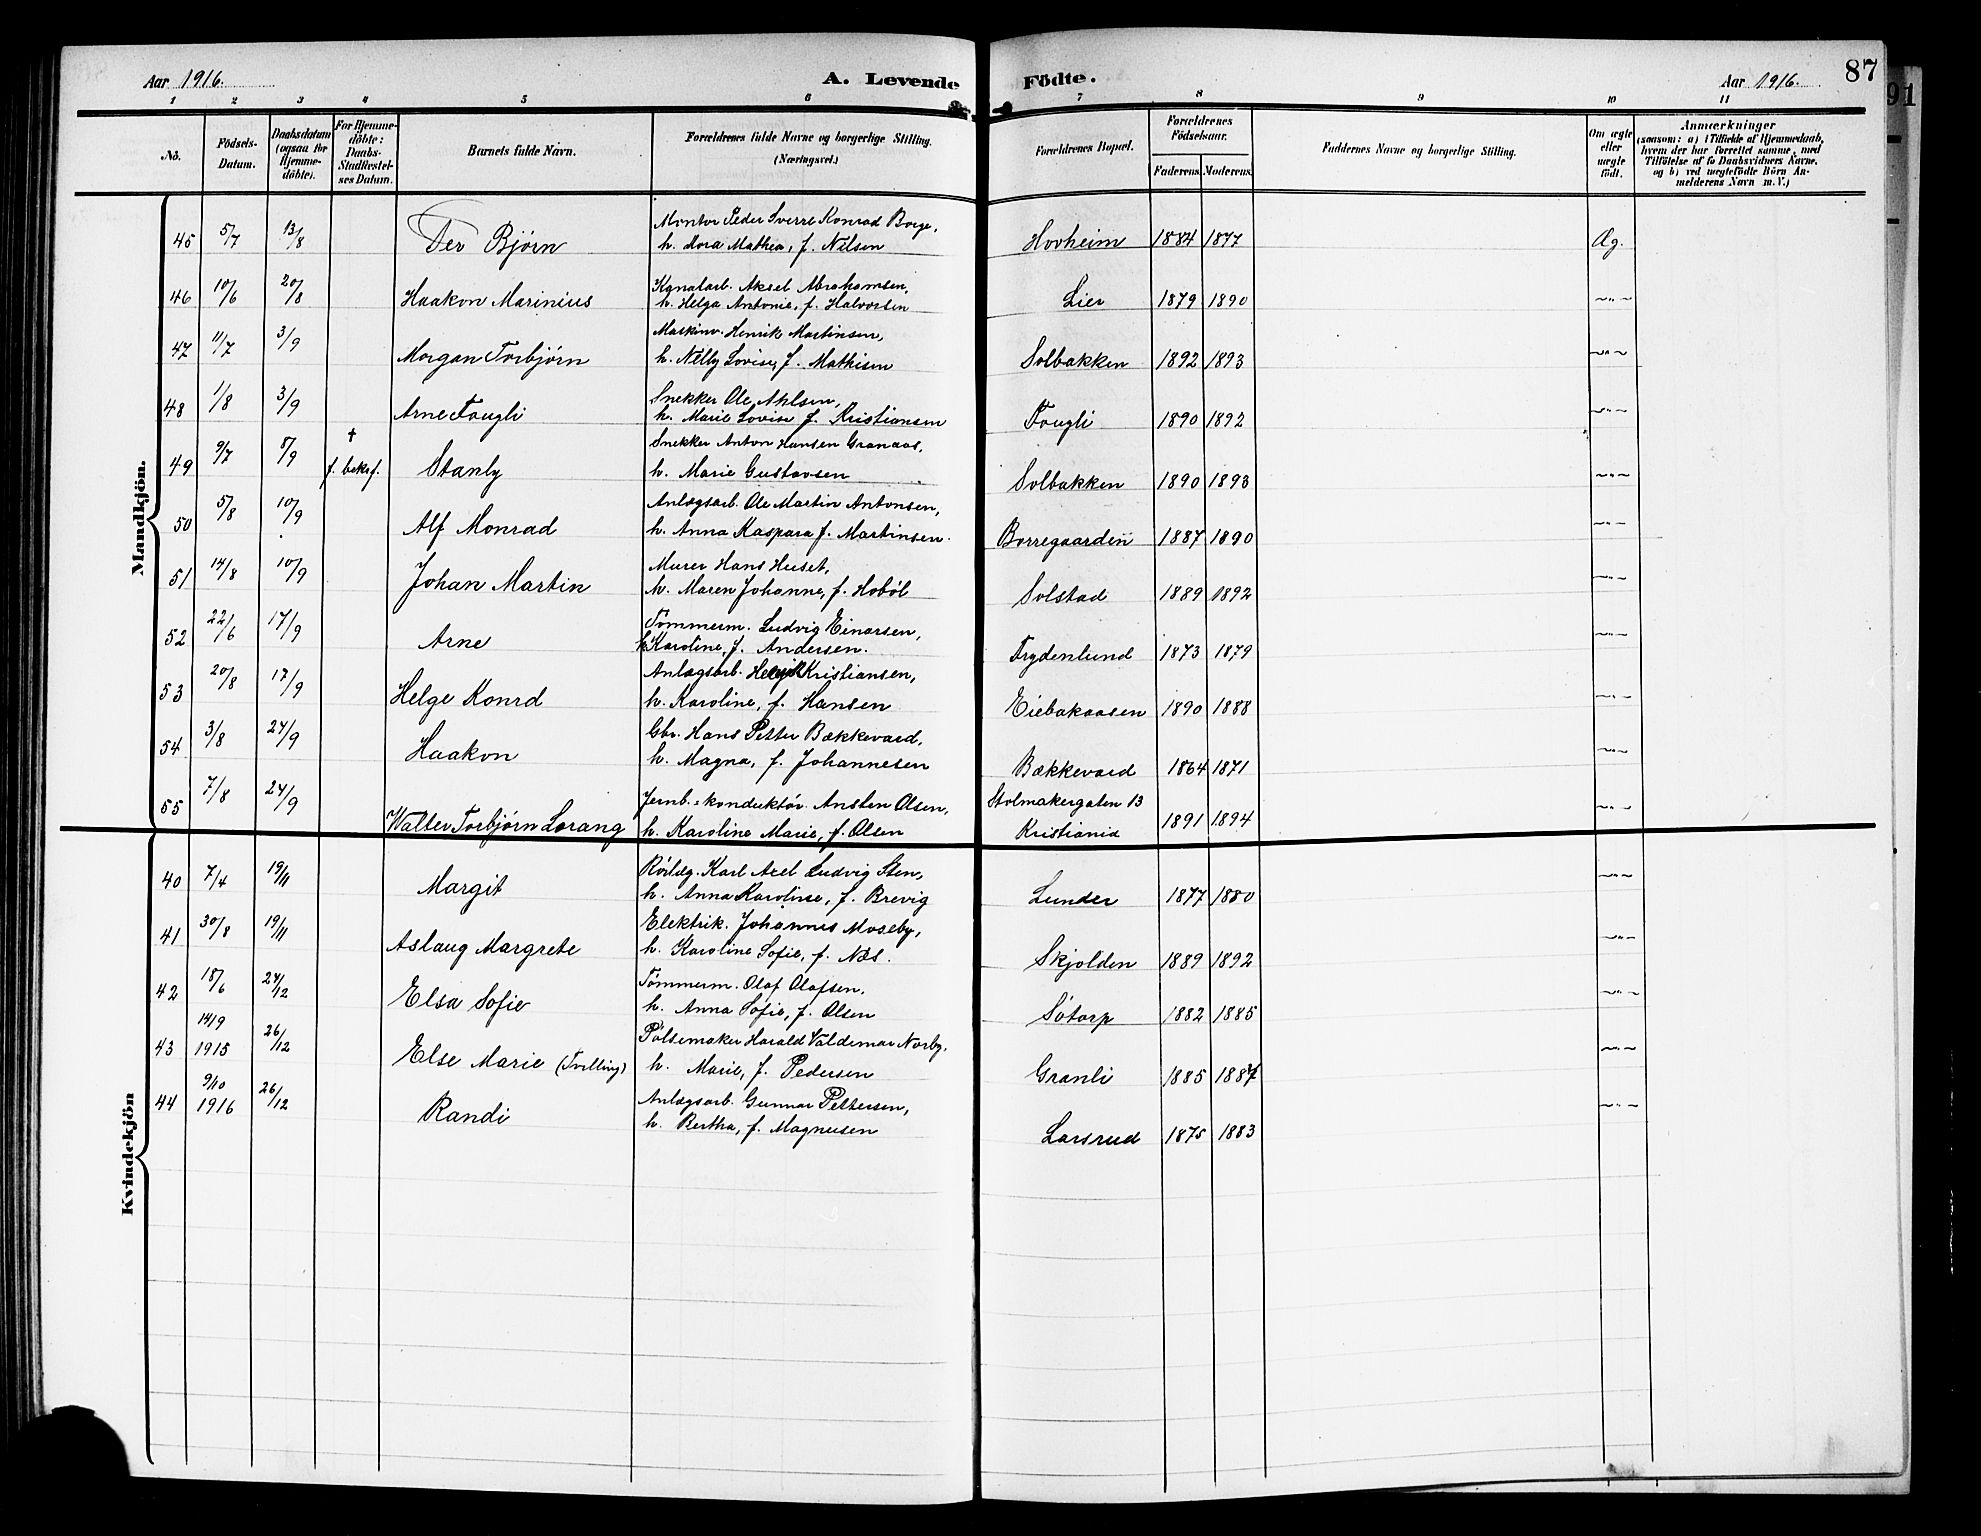 Aar 1916. A. Levende Födte. Aar 1916. 87
91
1 2 3 4 5 6 7 8 9 10 11
No. Födsels-Datum. Daabsdatum (ogsaa for Hjemme-döbte). For Hjemme-döbte: Daabs-Stadfæstel-ses Datum. Barnets fulde Navn. Forældrenes fulde Navne og borgerlige Stilling. (Næringsvei.) Forældrenes Bopæl. Forældrenes Födselsaar. Faderens Moderens Faddernes Navne og borgerlige Stilling. Om ægte eller uægte födt. Anmærkninger (saasom: a) i Tilfælde af Hjemmedaab, hvem der har forrettet samme, med Tilföielse af to Daabsvidners Navne, og b) ved uægtefödte Börn An-melderens Navn m. V.)
Mandkjön.
45 5/7 13/8 Per Bjørn Montør Peder Sverre Konrad Borge, Hovheim 1884 1877 Æg.
h. Dora Mathea, f. Nilsen
46 10/6 20/8 Haakon Marinius Kanalarb. Aksel Abrahamsen, Lier 1879 1890 ~"~
h. Helga Antonie, f. Halvorsen
47 11/7 3/9 Morgan Torbjørn Maskinv. Henrik Martinsen, Solbakken 1892 1893 ~"~
h. Nelly Lovise, f. Mathisen
48 1/8 3/9 Arne Fougli Snekker Ole Ahlsen, Fougli 1890 1892 ~"~
h. Marie Lovise f. Kristiansen
49 9/7 8/9 † f. bekr f. Stanly Snekker Anton Hansen Granaas, Solbakken 1890 1893 ~"~
h. Marie Gustavsen
50 5/8 10/9 Alf Monrad Anlægsarb. Ole Martin Antonsen, Borregaarden 1887 1890 ~"~
h. Anna Kaspara f. Martinsen.
51 14/8 10/9 Johan Martin Murer Hans Huset, Solstad 1889 1892 ~"~
h. Maren Johanne, f. Hobøl
52 22/6 17/9 Arne Tömmerm. Ludvig Einarsen, Frydenlund 1873 1879 ~"~
h. Karoline, f. Andersen.
53 20/8 17/9 Helge Konrd Anlægsarb. Kristiansen, Eiebakaasen 1890 1888 ~"~
h. Karoline, f. Hansen
54 3/8 24/9 Haakon Gbr. Hans Petter Bækkevard, Bækkevard 1864 1871 ~"~
h. Magna, f. Johannesen
55 7/8 24/9 Walter Torbjørn Lorang Jernb.-konduktør Ansten Olsen, Stolmakergaten 13 Kristiania 1891 1894 ~"~
h. Karoline Marie, f. Olsen
Kvindekjön
40 7/4 19/11 Margit Rörlæg. Karl Axel Ludvig Sten, Lunder 1877 1880 ~"~
h. Anna Karoline, f. Brevig
41 30/8 19/11 Aslaug Margrete Elektrik. Johannes Moseby, Skjolden 1889 1892 ~"~
h. Karoline Sofie, f. Næs.
42 18/6 24/12 Elsa Sofie Tömmerm. Olaf Olafsen, Sötorp 1882 1885 ~"~
h. Anna Sofie, f. Olsen
43 14/9 1915 26/12 Else Marie (Tvilling) Pölsemaker Harald Valdemar Norby, Granli 1885 1887 ~"~
h. Marie, f. Pedersen
44 9/10 1916 26/12 Randi Anlægsarb. Gunnar Pettersen, Larsrud 1875 1883 ~"~
h. Bertha, f. Magnusen